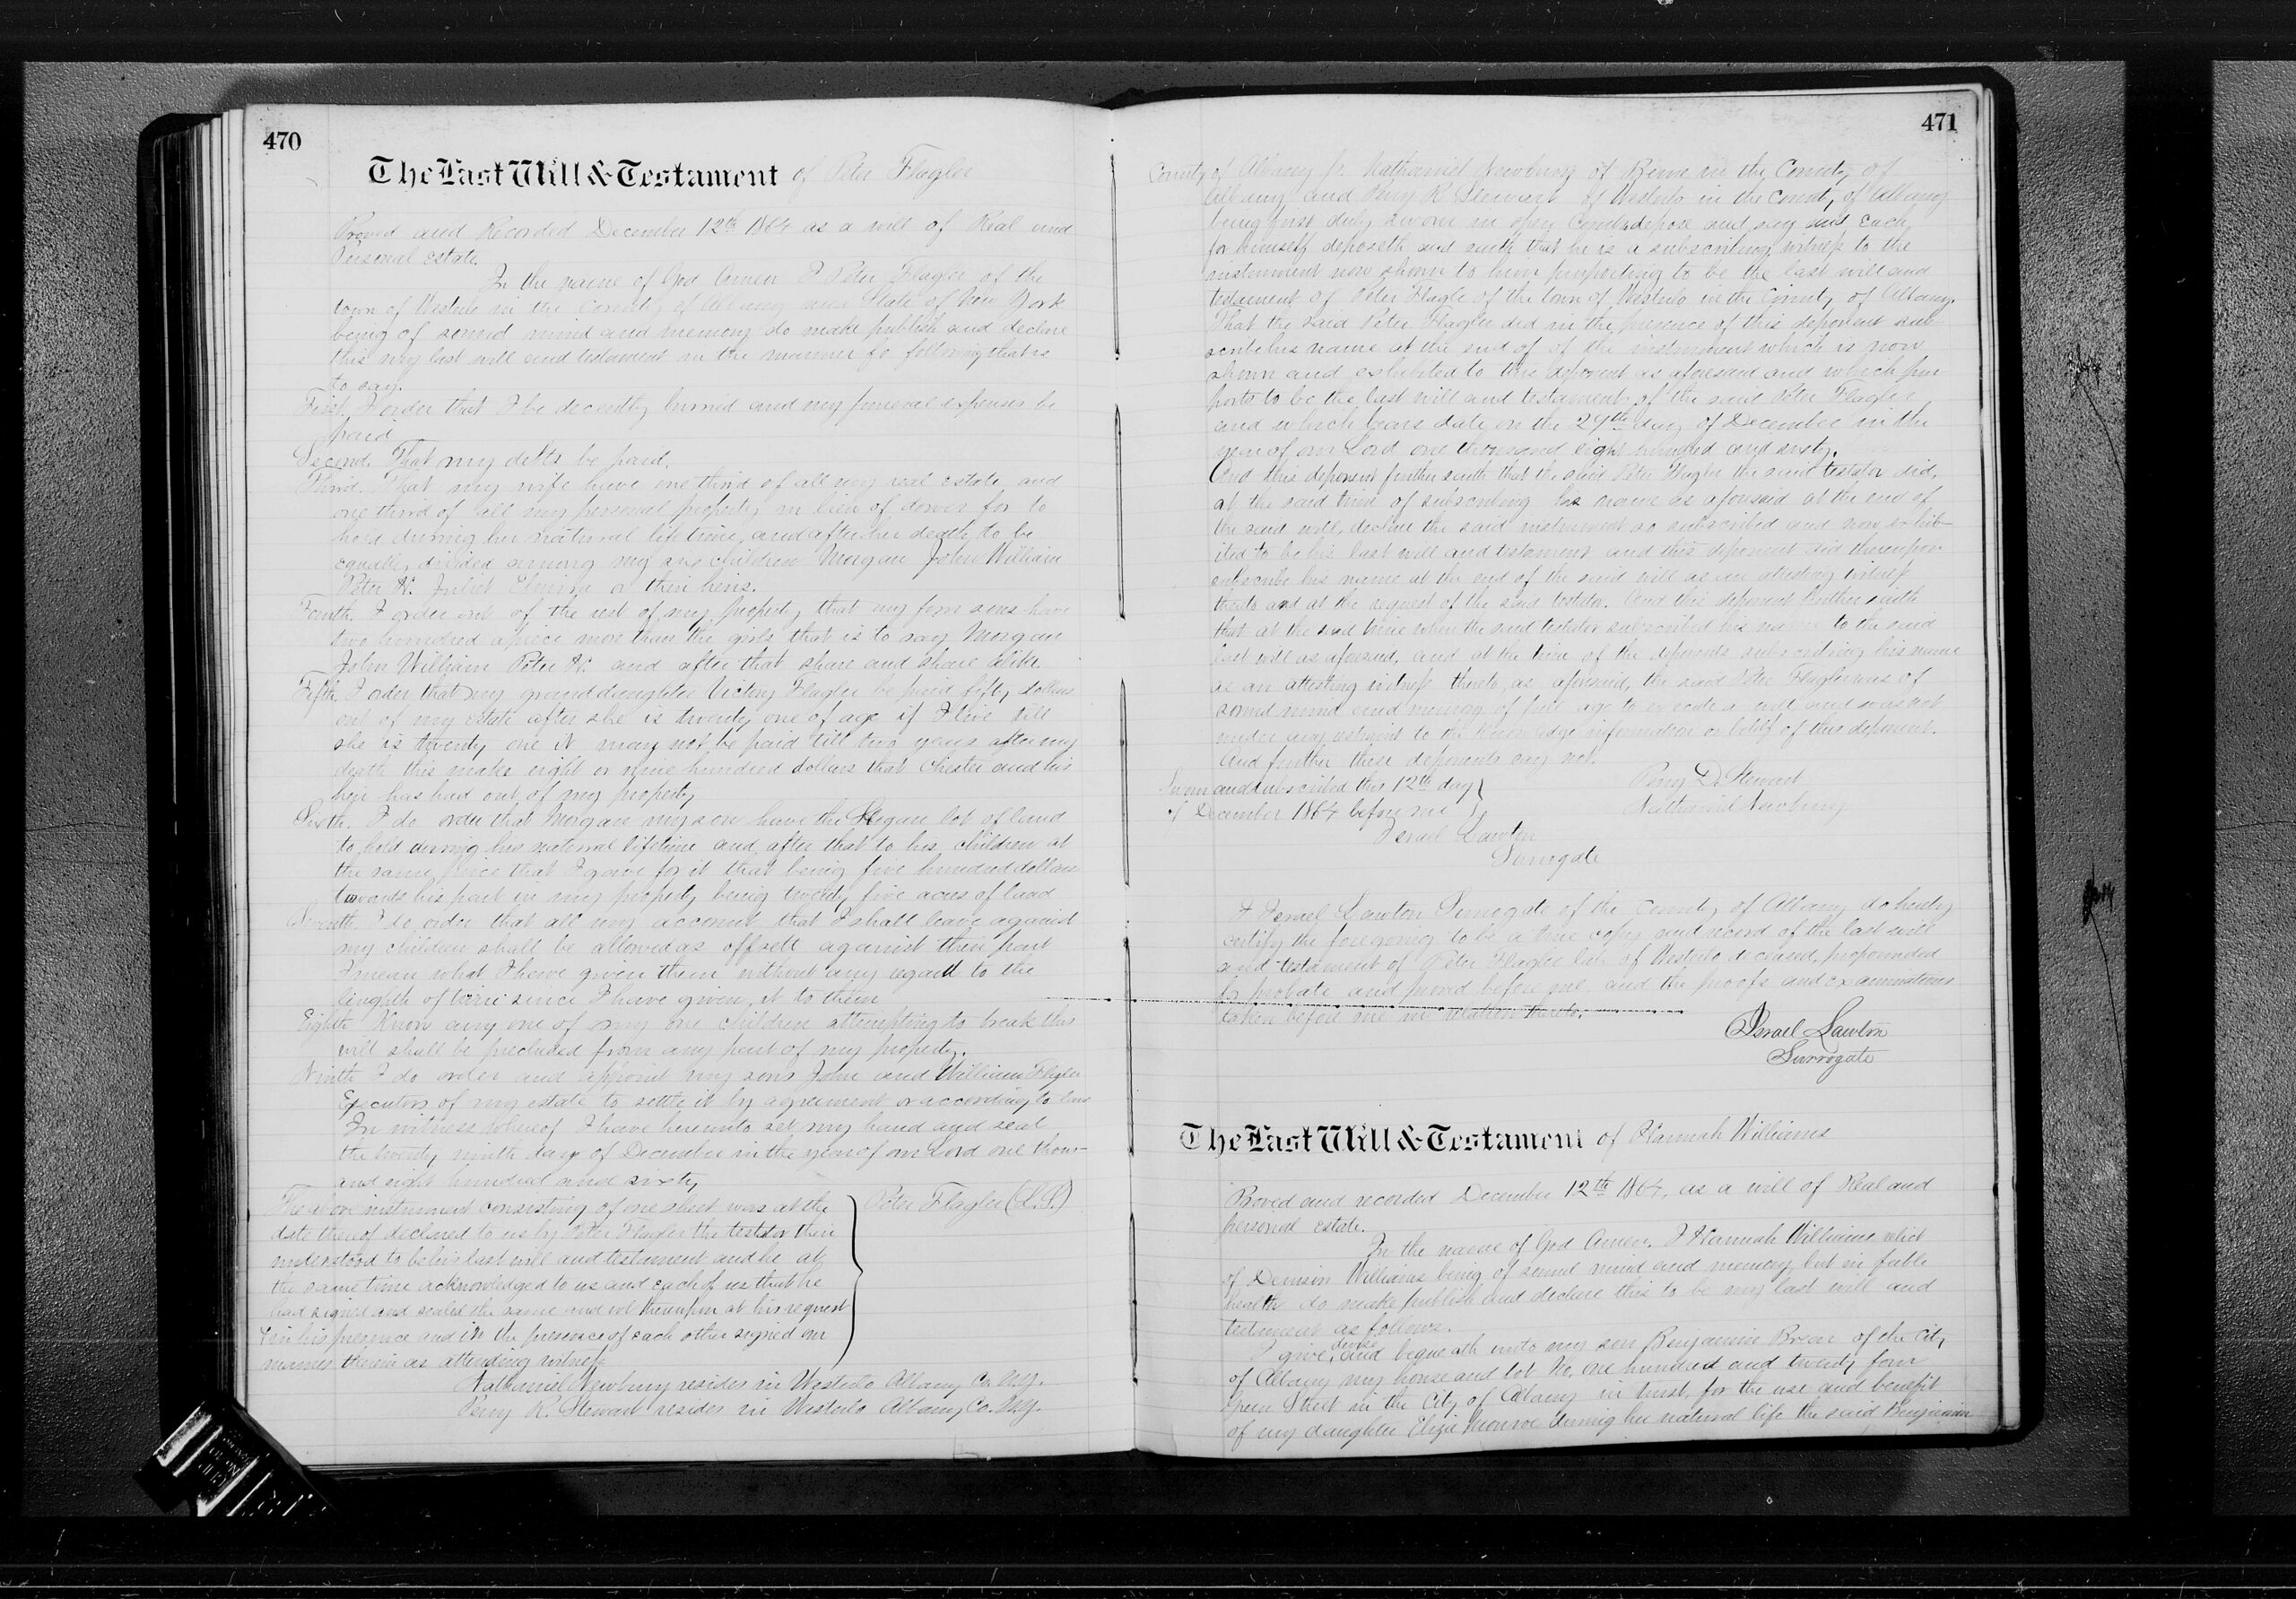 470
The Last Will & Testament of Peter Flagler
Proved and Recorded December 12th 1864 as a will of Real and
Personal Estate.
In the name of God Amen I Peter Flagler of the
town of Westerlo in the County of Albany and State of New York
being of sound mind and memory do make publish and declare
this my last will and testament in the manner fo following that is
to say.
First. I order that I be decently burried and my funeral expenses be
paid
Second. That my debts be paid.
Third. That my wife have one third of all my real estate and
one third of all my personal property in lieu of dower for to
hold during her natural life time, and after her death to be
equally divided among my six children Morgan John William
Peter N. Juliet Elmira or their heirs.
Fourth. I order out of the rest of my property that my four sons have
two hundred apiece more than the girls that is to say Morgan
John William Peter N. and after that share and share alike.
Fifth. I order that my granddaughter Victory Flagler be paid fifty dollars
out of my estate after she is twenty one of age if I live till
she is twenty one it may not be paid till two years after my
death this makes eight or nine hundred dollars that Chester and his
heir has had out of my property
Sixth. I do order that Morgan my son have the lot of land
to hold during his natural lifetime and after that to his children at
the same price that I gave for it that being five hundred dollars
towards his part in my property being twenty five acres of land
Seventh I do order that all my account that I shall leave against
my children shall be allowed as offsett against their part
I mean what I have given them without any regard to the
lenghth of time since I have given it to them
Eighth Know any one of my one children attempting to break this
will shall be precluded from any part of my property.
Ninth I do order and appoint my sons John and William Flagler
Executors of my estate to settle it by agreement or according to law
In witness whereof I have hereunto set my hand and seal
the twenty ninth day of December in the year of our Lord one thous-
and eight hundred and sixty
The above instrument consisting of one sheet was at the
Peter Flagler (L.S.)
date thereof declared to us by Peter Flagler the testator then
understood to be his last will and testament and he at
the same time acknowledged to us and each of us that he
had signed and sealed the same and we thereupon at his request
& in his presence and in the presence of each other signed our
names thereto as attending witness
Nathaniel Newbury resides in Westerlo Albany Co. N.Y.
Perry R. Stewart resides in Westerlo Albany Co. N.Y.
471
County of Albany ss. Nathaniel Newbury of Berne in the County of
Albany and Perry R Stewart of Westerlo in the County of Albany
being first duly sworn in open Court depose and say and each
for himself deposeth and saith that he is a subscribing witness to the
instrument now shown to him purporting to be the last will and
testament of Peter Flagle of the town of Westerlo in the County of Albany.
That the said Peter Flagler did in the presence of this deponent sub-
scribe his name at the end of of the instrument which is now
shown and exhibited to this deponent as aforesaid and which pur
ports to be the last will and testament of the said Peter Flagler
and which bears date on the 29th day of December in the
year of our Lord one thousand eight hundred and sixty.
And this deponent further saith that the said Peter Flagler the said testator did,
at the said time of subscribing his name as aforesaid at the end of
the said will, declare the said instrument so subscribed and now exhib-
ited to be his last will and testament and this deponent did thereupon
subscribe his name at the end of the said will as an attesting witness
thereto and at the request of the said testator. And this deponent further saith
that at the said time when the said testator subscribed his name to the said
last will as aforesaid, and at the time of the deponents subscribing his name
as an attesting witness thereto, as aforesaid, the said Peter Flagler was of
sound mind and memory of full age to execute a will and was not
under any restraint to the knowledge information or belief of this deponent.
And further these deponents say not.
Sworn and subscribed this 12th day
of December 1864 before me
Perry D. Stewart
Nathaniel Newbury
Israel Lawton
Surrogate
I Israel Lawton Surrogate of the County of Albany do hereby
certify the foregoing to be a true copy and record of the last will
and testament of Peter Flagler late of Westerlo deceased, propounded
for probate and proved before me, and the proofs and examinations
taken before me in relation thereto.
Israel Lawton
Surrogate
The Last Will & Testament of Hannah Williams
Proved and recorded December 12th 1864, as a will of Real and
personal Estate.
In the name of God Amen. I Hannah Williams relict
of Denison Williams being of sound mind and memory but in feeble
health do make publish and declare this to be my last will and
testament as follows.
I give, devise and bequeath unto my son Benjamin Brear of the City
of Albany my house and lot No. one hundred and twenty four
Green Street in the City of Albany in trust, for the use and benefit
of my daughter Eliza Monroe during her natural life the said Benjamin